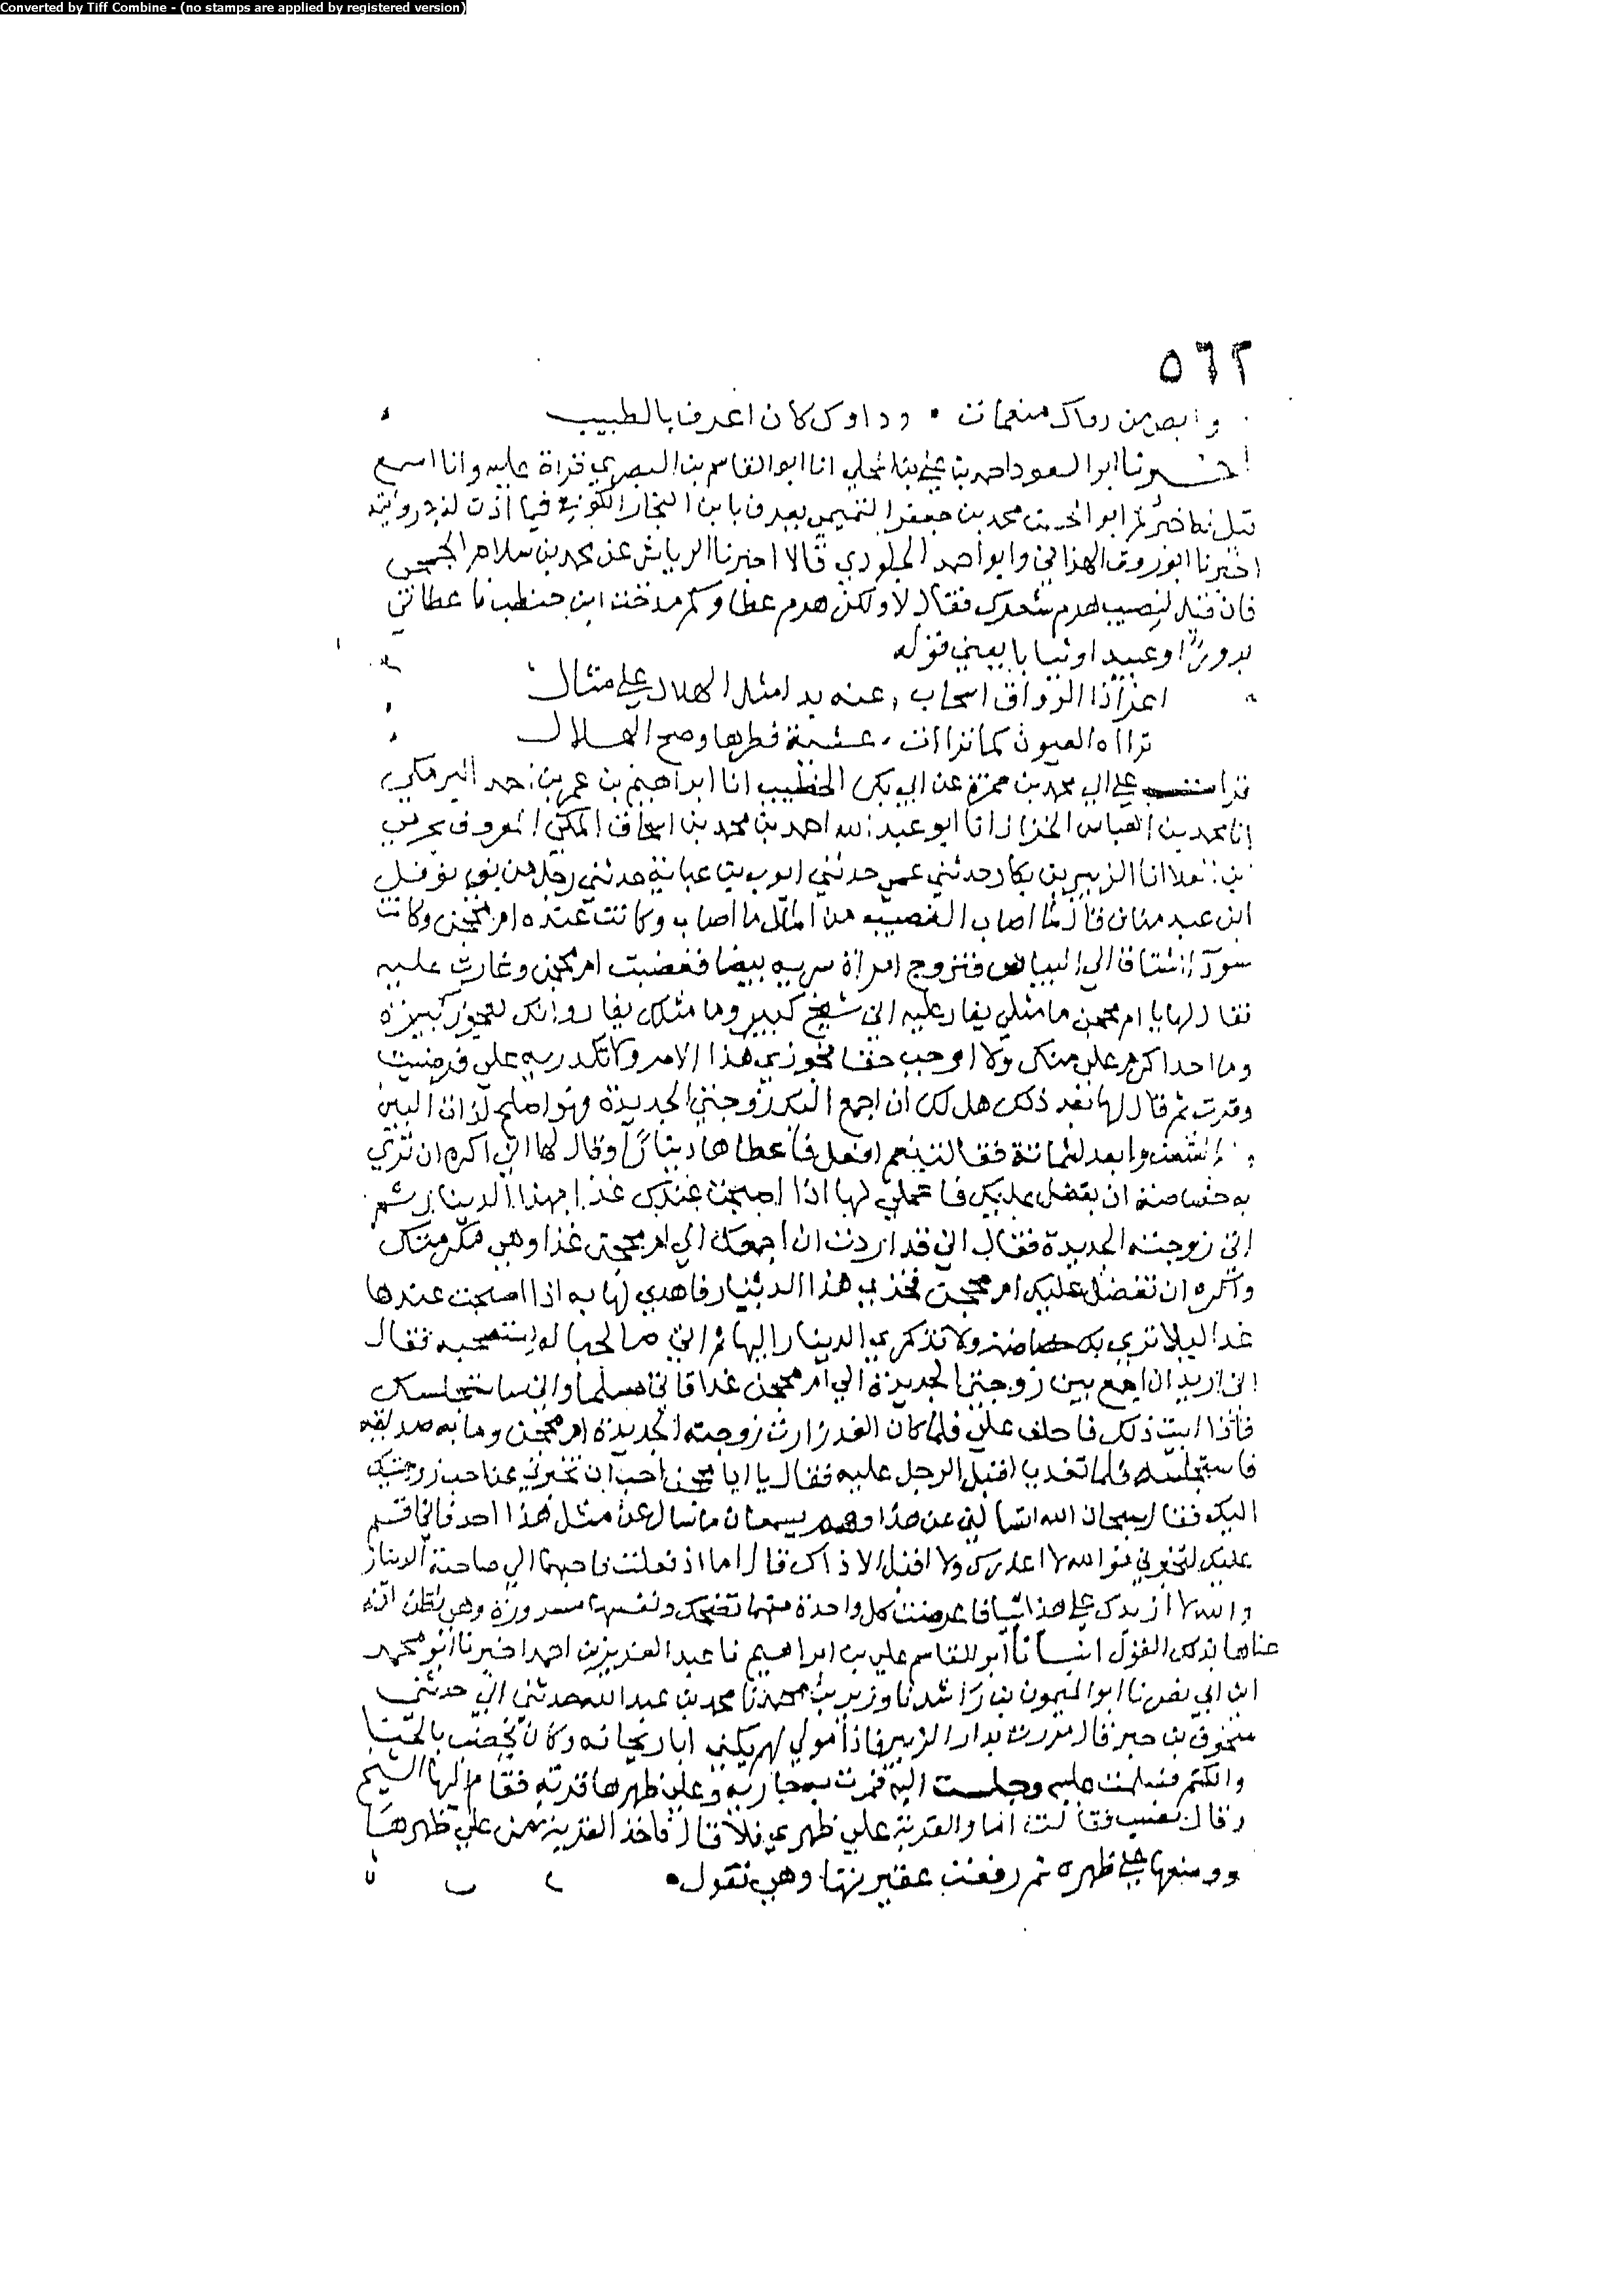 Converted by Tiff Combine - (no stamps are applied by registered version)
٥٦٢
وابصر من رواك منعمات • وداوى كان اعرف بالطبيب
اخبرنا ابو السعود احمد بن علي بن المجلي انا ابو القاسم بن البصري قراة عليه وانا اسمع
ابو الحسن محمد بن جعفر التميمي يعرف بابن النجار الكوفي فيما اذن لنا في روايته
اخبرنا ابو روق الهزاني وابو احمد الجلودي قالا اخبرنا الرياشي عن محمد بن سلام الجمحي
قال قيل لنصيب هرم شعرك فقال لا ولكن هرم عطاوكم مدحت ابن حنطب فاعطاني
وعبيدا وثيابا يعني قوله
اغر اذا الرواق انجاب عنه بدا مثل الهلال علي مثال
تراآه العيون كما تراات عشية فطرها وضح الهلال
قرات علي ابي محمد بن حمزة عن ابي بكر الخطيب انا ابراهيم بن عمر بن احمد البرمكي
انا محمد بن العباس الخزاز انا ابو عبد الله احمد بن محمد بن اسحاق المكي المعروف بحرمي
بن العلا انا الزبير بن بكار حدثني عمي حدثني ايوب بن عباية حدثني رجل من بني نوفل
ابن عبد مناف قال لما اصاب النصيب من المال ما اصاب وكانت عنده ام محجن وكانت
سودآ اشتاق الي البياض فتزوج امراة سرية بيضا فغضبت ام محجن وغارت عليه
فقال لها يا ام محجن ما مثلي يغار عليه اني شيخ كبير وما مثلك يغار وانك لعجوز كبيرة
وما احد اكرم علي منك ولا اوجب حقا فجوزي هذا الامر ولا تكدريه علي فرضيت
وقرت ثم قال لها بعد ذلك هل لك ان اجمع اليك زوجتي الجديدة فهو اصلح لذات البين
والم للشعث وابعد للشماتة فقالت نعم افعل فاعطاها دينارا وقال لها اني اكره ان تري
بك خصاصة ان تفضل عليك فاعملي لها اذا اصبحت عندك غدا بهذا الدينار ثم
اتي زوجته الجديدة فقال اني قد اردت ان اجمعك الي ام محجن غدا وهي مكرمتك
واكره ان تفضل عليك ام محجن فخذي هذا الدينار فاهدي لها به اذا اصبحت عندها
غدا ليلا تري بك خصاصة ولا تذكري الدينار لها ثم اتي صاحبا له يستنصحه فقال
اني اريد ان اجمع بين زوجتي الجديدة الي ام محجن غدا فاتني مسلما واني ساستجلسك
فاذا ابيت ذلك فاحلف علي فلما كان الغد زارت زوجته الجديدة ام محجن ومر به صديقه
فاستجلسه فلما تغديا اقبل الرجل عليه فقال يا ابا محجن احب ان تخبرني عن احب زوجتيك
اليك فقال سبحان الله اتسالني عن هذا وهما يسمعان ما سال عن مثل هذا احد قال فاني اقسم
عليك لتخبرني فوالله لا اعذرك ولا اقبل الا ذاك قال اما اذ فعلت فاحبهما الي صاحبة الدينار
والله لا ازيدك علي هذا شيا فاعرضت كل واحدة منهما تضحك ونفسها مسرورة وهي تظن انه
عناها بذلك القول انبانا ابو القاسم علي بن ابراهيم نا عبد العزيز بن احمد اخبرنا ابو محمد
ابن ابي نصر نا ابو الميمون بن راشد نا محمد بن عبد الله حدثني ابي حدثني
قال مررت بدار الزبير فاذا مولي لهم يكنى ابا ريحانه وكان يخضب بالحنا
والكتم فسلمت عليه وجلست اليه فمرت به جارية وعلي ظهرها قربة فقام اليها الشيخ
فقالت اما والقربة علي ظهري فلا قال فاخذ القربة من علي ظهرها
ووضعها علي ظهره ثم رفعت عقيرتها وهي تقول •